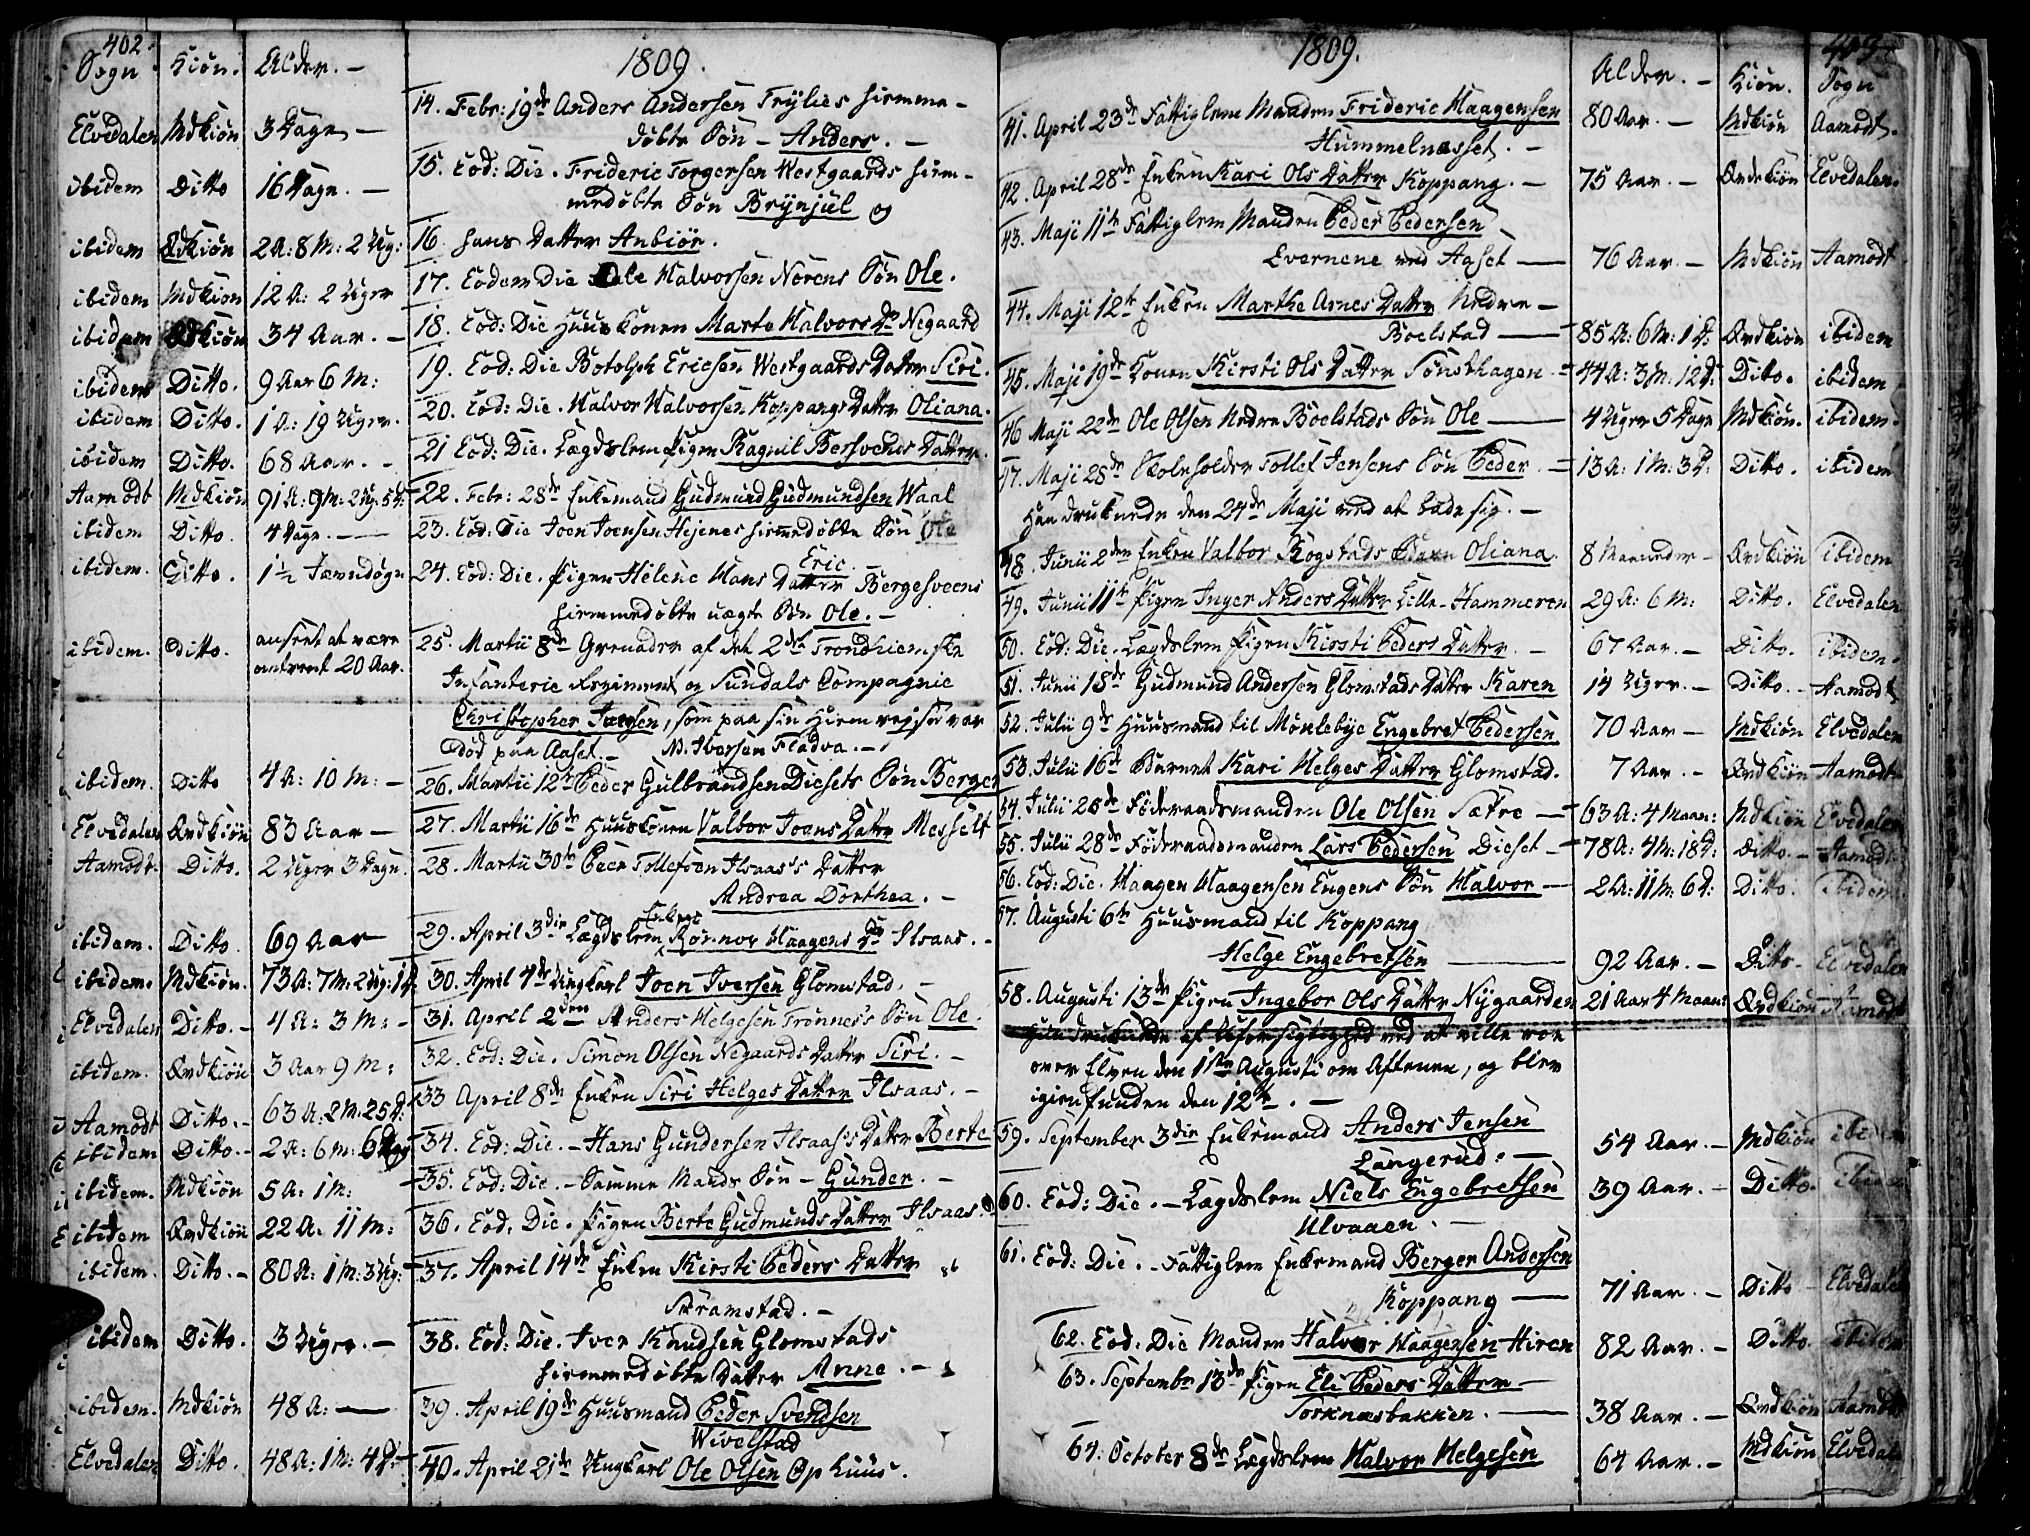 402
Sogn Kiön. Alder. — 1809.
Elvedalen Mdkiön 3 Dage — 14. Febr: 19de Anders Andersen Trylies hiemme-
döbte Sön — Anders. —
ibidem Ditto 16 Dage. — 15. Eod: Die. Frideric Torgersen Westgaards hiem-
medöbte Sön Brynjul og
ibidem Qvdkiön 2 A: 8 M: 2 Ug: 16. hans Datter Anbiör.
ibidem Mdkiön 12 A: 2 Uger 17. Eodem Die Halvorsen Nörens Sön Ole.
ibidem Qvdkiön 34 Aar. — 18. Eod: Die Huuskonen Marte Halvors Dr Negaard
ibidem Ditto. 9 Aar 6 M: 19. Eod: Die Botolph Ericsen Westgaards Datter Siri.
ibidem Ditto. 1 A: 19 Uger. 20. Eod: Die. Halvor Halvorsen Koppangs Datter Oliana.
ibidem Ditto. 68 Aar. - 21 Eod: Die. Lægdslem Pigen Ragnil Bersvends Datter.
Aamodt Mdkiön 91 A: 9 M: 2 Ug: 5 d: 22. Febr: 28de Enkemand Gudmund Gudmundsen Waal
ibidem Ditto. 4 Dage. — 23. Eod: Die Joen Joensen Hejenes hiemmedöbte Sön
Eric.
ibidem. Ditto. 1½ Jævndögn 24. Eod: Die. Pigen Helene Hans Datter Bergesveens
hiemmedöbte uægte Sön Ole. —
ibidem. Ditto. anseet at være omtrent 20 Aar. 25. Martii 8de Grenadeer af det 2det Trondhiemske
Infanterie Regiment og Sundals Compagnie
Christopher Iversen, som paa sin Hiemreise var
död paa Aaset. — Iversen Fladva. —
ibidem. Ditto 4 A: 10 M: — 26. Martii 12te Peder Gulbrandsen Diesets Sön Berger
Elvedalen Qvdkiön 83 Aar — 27. Martii 16de Huuskonen Valbor Joens Datter Messelt
Aamodt. Ditto. 2 Uger 3 Dage. 28. Martii 30te Peer Tollefsen Ilsaas's Datter
Andrea Dorthea. —
ibidem. Ditto. 69 Aar 29. April 3die Lægdslem Enken Rönnov Haagens Dr Ilsaas. -
ibidem. Mdkiön. 73 A: 7 M: 2 Ug: 1 d. 30. April 4de Ungkarl Joen Iversen Glomstad. —
Elvedalen Ditto. - 4 A: 3 M: - 31. April 2den Anders Helgesen Trönnes's Sön Ole.
ibidem. Qvdkiön 3 Aar 9 M: 32. Eod: Die. Simon Olsen Negaards Datter Siri. —
Aamodt Ditto. - 63 A: 2 M. 25 d: 33 April 8de Enken Siri Helges Datter Ilsaas. —
ibidem Ditto. - 2 A: 6 M: 34. Eod: Die. - Hans Gundersen Ilsaas's Datter Berte
ibidem. Mdkiön 5 A: 1 M: 35. Eod: Die. - Samme Mands Sön - Gunder. —
ibidem Qvdkiön 22 A. 11 M: 36. Eod. Die. Pigen Berte Gudmunds Datter Ilsaas.
ibidem. Ditto. - 80 A: 1 M: 3 Ug: 37. April 14de Enken Kirsti Peders Datter
Skramstad. —
ibidem Ditto. 3 Uger. — 38. Eod: Die. Iver Knudsen Glomstads
hiemmedöbte Datter Anne. —
ibidem. Mdkiön 48 A: — 39. April 19de Huusmand Peder Svendsen
Wivelstad
Elvedalen Ditto. 48 A: 1 M: 4 d: 40. April 21de Ungkarl Ole Olsen Ophuus.
403
1809. Alder. — Kiön. Sogn
41. April 23de Fattiglem Manden Frideric Haagensen 80 Aar. — Mdkiön Aamodt.
Hummelnæsset. —
42. April 28de Enken Kari Ols Datter Koppang. — 75 Aar. — Qvdkiön Elvedalen.
43. Maji 11te Fattiglem Manden Peder Pedersen
Evernene ved Aaset — 76 Aar. — Mdkiön Aamodt
44. Maji 12te Enken Marthe Arnes Datter Nedre -
Boelstad — 85 A: 6 M: 1 d: Qvdkiön ibidem
45. Maji 19de Konen Kirsti Ols Datter Sönsthagen. 44 A: 3 M: 12 d: Ditto. ibidem
46 Maji 22de Ole Olsen Nedre Boelstads Sön Ole — 4 Uger 5 Dage Mdkiön. ibidem.
47. Maji 28de Skoleholder Tollef Jensens Sön Peder. — 13 A: 1 M: 3 d: Ditto. ibidem
Han druknede den 24de Maji ved at bade sig. —
48. Junii 2den Enken Valbor Rogstads Oliana 8 Maaneder — Qvdkiön ibidem
49. Junii 11te Pigen Inger Anders Datter Lille-Hammeren 29 A: 6 M: Ditto. Elvedalen
50. Eod: Die. Lægdslem Pigen Kirsti Peders Datter. — 67 Aar. — Ditto. ibidem.
51. Junii 18de Gudmund Andersen Glomstads Datter Karen 14 Uger. — Ditto. - Aamodt
52. Julii 9de Huusmand til Mönlebye Engebret Pedersen 70 Aar — Mdkiön Elvedalen
53. Julii 16de Barnet Kari Helges Datter Glomstad. 7 Aar. - Qvdkiön Aamodt
54. Julii 26de Föderaadsmanden Ole Olsen Sætre — 63 A: 4 Maan: Mdkiön Elvedalen
55. Julii 28de Föderaadsmanden Lars Pedersen Dieset — 78 A: 4 M: 18 d: Ditto. - Aamodt
56. Eod: Die. Haagen Haagensen Eugens Sön Halvor — 2 A: 11 M: 6 d: Ditto. ibidem
57. Augusti 6te Huusmand til Koppang
Helge Engebretsen — 92 Aar. — Ditto - Elvedalen
58. Augusti 13de Pigen Ingebor Ols Datter Nygaarden 21 Aar 4 Maan: Qvdkiön Aamodt
Hun druknede af Uforsigtighed ved at ville roe
over Elven den 11te Augusti om Aftenen, og blev
igienfunden den 12te. —
59. September 3die Enkemand Anders Jensen 54 Aar. — Mdkiön ibidem
Langerud. —
60. Eod: Die. — Lægdslem Niels Engebretsen 39 Aar. - Ditto. ibidem
Ulvaaen. —
61. Eod: Die. - Fattiglem Enkemand Berger Andersen
Koppang — 71 Aar. — Ditto - Elvedalen
62. Eod: Die Manden Halvor Haagensen Hiren 82 Aar. — Ditto. ibidem
63. Septembr 13de Pigen Eli Peders Datter —
Torknæsbakken. — 38 Aar. — Qvdkiön Aamodt
64. October 8de Lægdslem Halvor Helgesen 64 Aar. — Mdkiön Elvedal